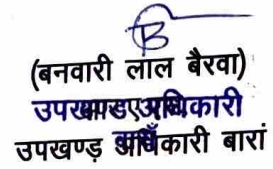 (बनवारी लाल बैरवा)
उपखण्ड अधिकारी
उपखण्ड़ अधिकारी बारां